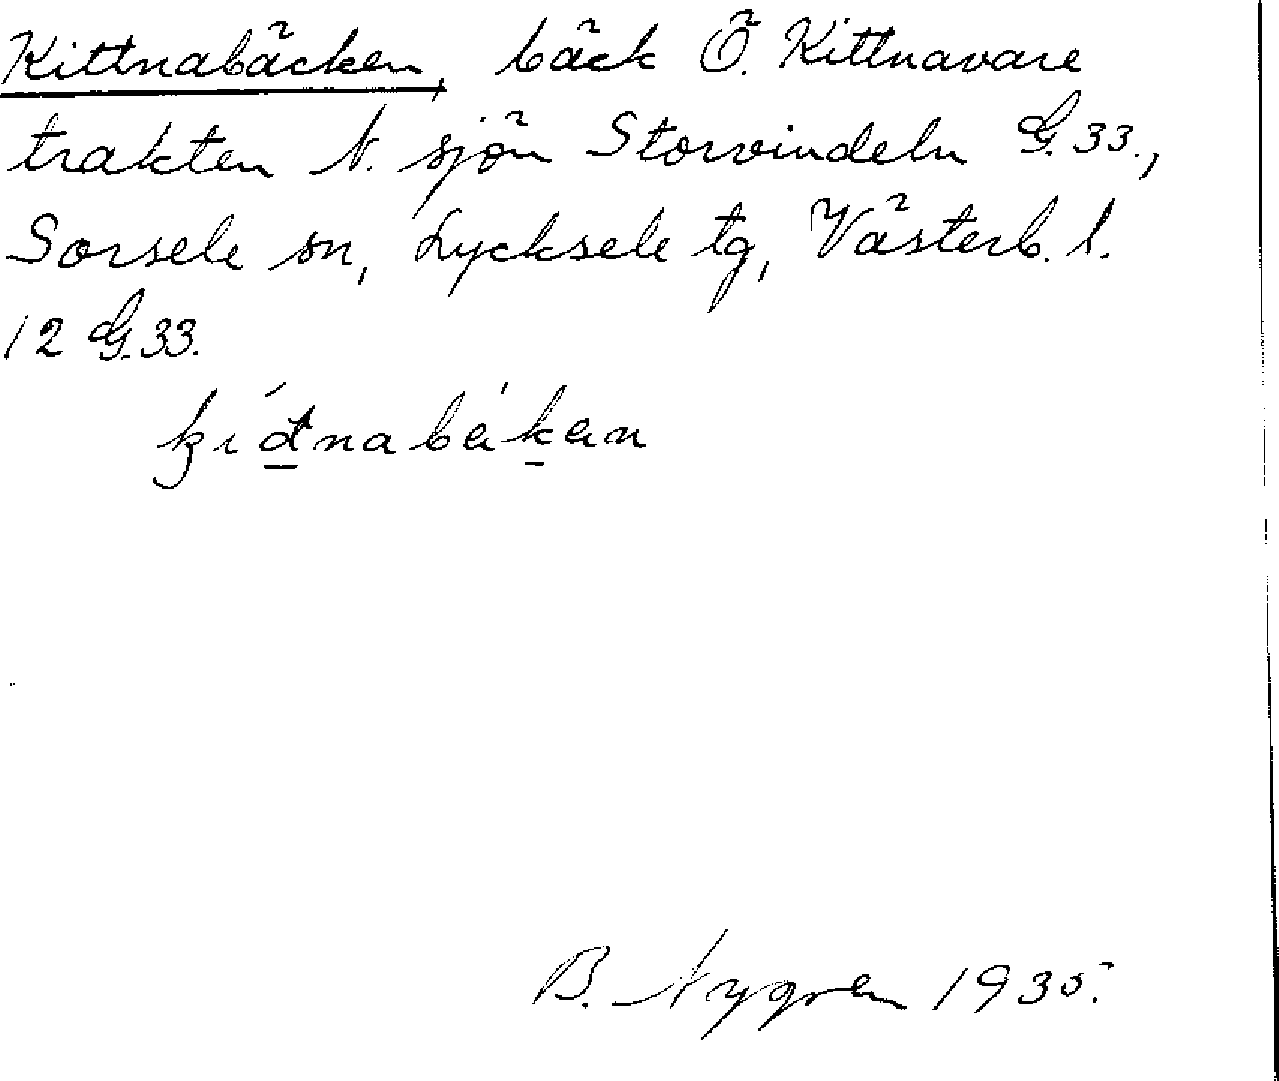 Kittnabäcken, bäck Ö. Kittnavare
trakten N. sjön Storvindeln G. 33.,
Sorsele sn, Lycksele tg, Västerb. l.
12 G. 33.
B. Nygren 1935.